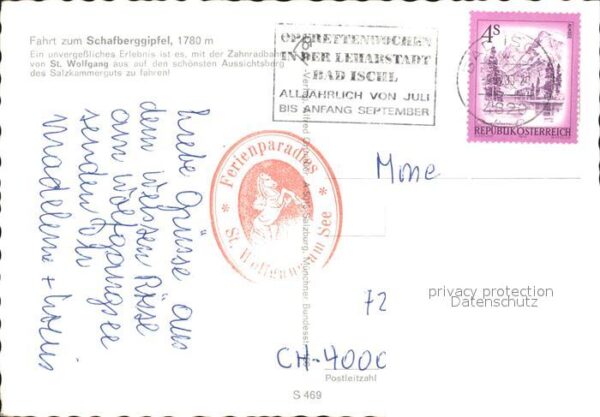 Fahrt zum Schafberggipfel, 1780 m
Ein unvergeßliches Erlebnis ist es, mit der Zahnradbahn
von St. Wolfgang aus auf den schönsten Aussichtsberg
des Salzkammerguts zu fahren!
OPERETTENWOCHEN
IN DER LEHARSTADT
BAD ISCHL
ALLJÄHRLICH VON JULI
BIS ANFANG SEPTEMBER
4S
REPUBLIK ÖSTERREICH
482
Liebe Grüsse aus
dem Weissen Rössl
am Wolfgangsee
senden Dir
Madeleine + Louis
* Ferienparadies *
St. Wolfgang am See
Salzburg, Münchner Bundesstr.
Mme
72
CH-4000
Postleitzahl
S 469
privacy protection
Datenschutz